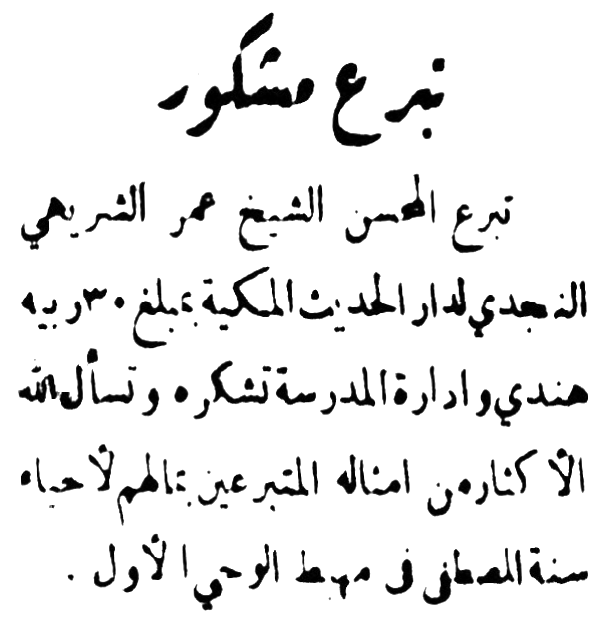 تبرع مشكور
تبرع المحسن الشيخ عمر الشريهي
النجدي لدار الحديث المكية بمبلغ ٣٠ ربيه
هندي وادارة المدرسة تشكره وتسأل الله
الأكثار من امثاله المتبرعين بمالهم لأحياء
سنة المصطفى فى مهبط الوحي الأول .